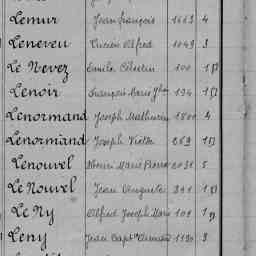 Lemur Jean françois 1663 4
Leneveu Lucien Alfred 1049 3
Le Nevez Emile Célestin 100 1
Lenoir François Marie 194 1
Lenormand Joseph Mathurin 1800 4
Lenormand Joseph Victor 869
Lenouvel Marie Pierre 2031 5
Le Nouvel Jean Auguste 1
Le Ny Alfred Joseph Marie 101 1
Leny Jean Bapt 1190 3